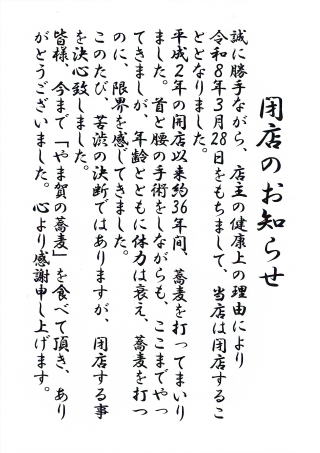 閉店のお知らせ
誠に勝手ながら、店主の健康上の理由により
令和8年3月28日をもちまして、当店は閉店するこ
ととなりました。
平成2年の開店以来約36年間、蕎麦を打ってまいり
ました。首と腰の手術をしながらも、ここまでやっ
てきましたが、年齢とともに体力は衰え、蕎麦を打つ
のに、限界を感じてきました。
このたび、苦渋の決断ではありますが、閉店する事
を決心致しました。
皆様、今まで「やま賀の蕎麦」を食べて頂き、あり
がとうございました。心より感謝申し上げます。